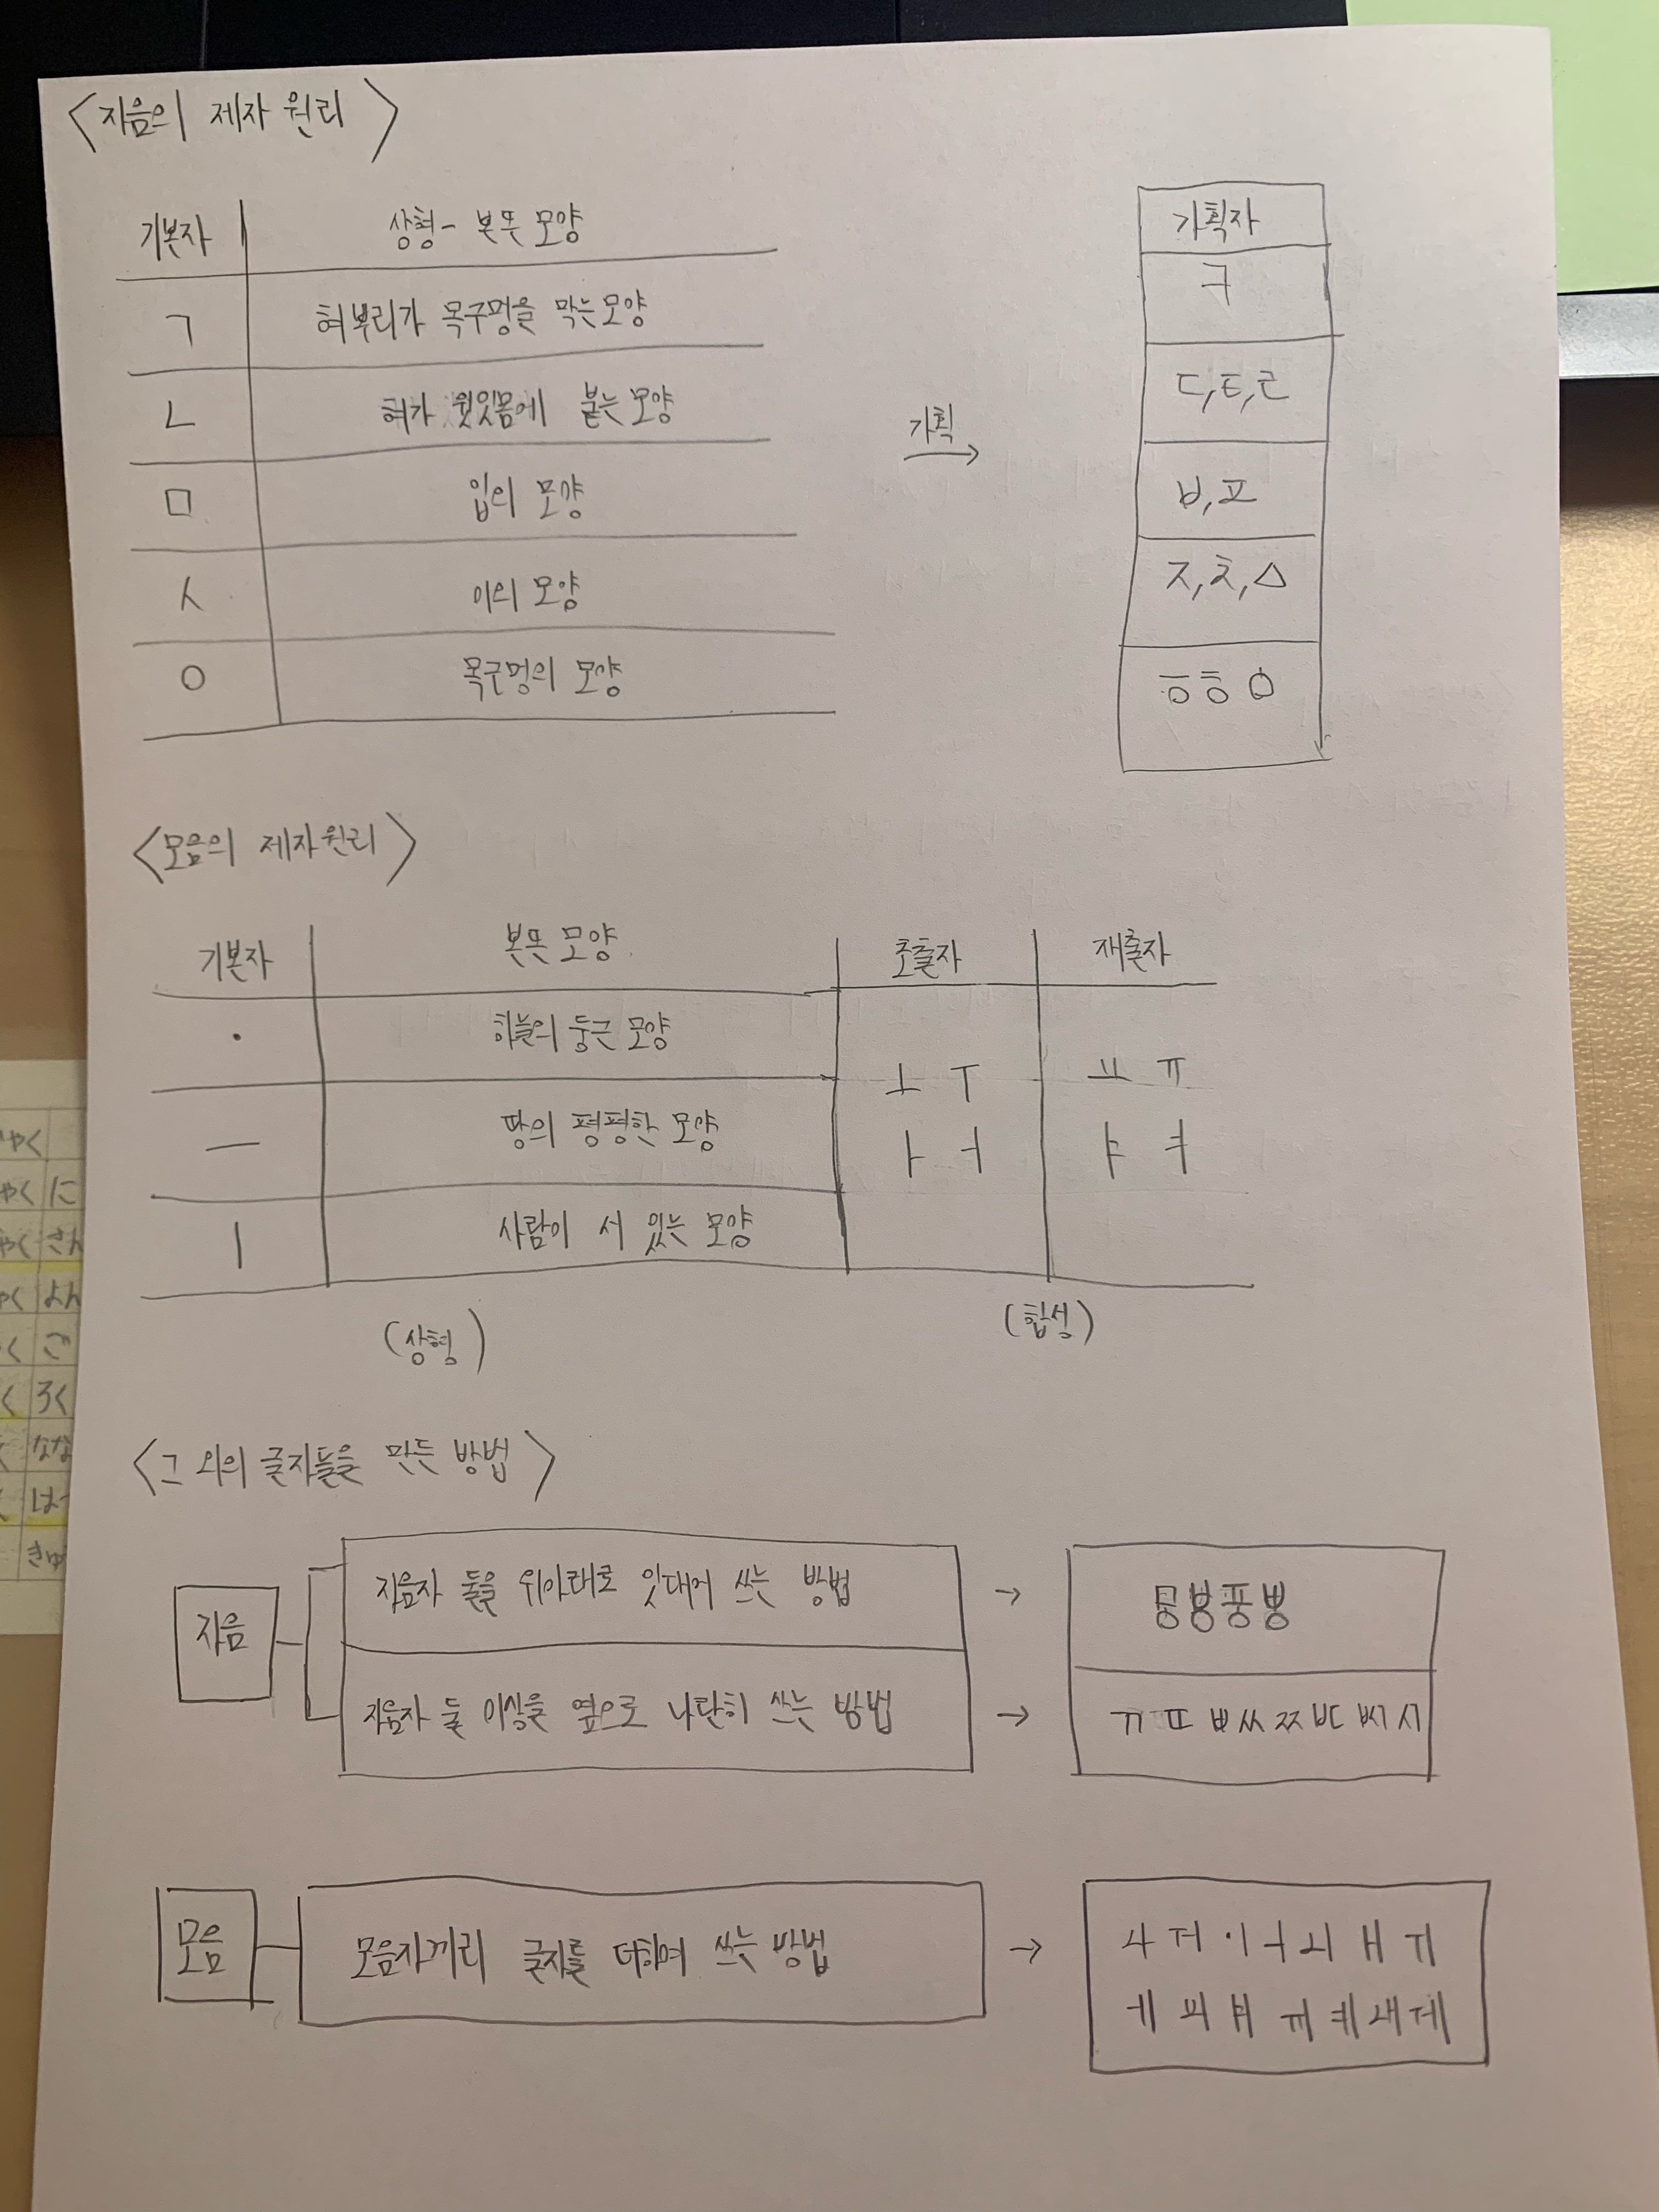 <자음의 제자 원리>
기본자 상형- 본뜬 모양 가획자
ㄱ 혀뿌리가 목구멍을 막는 모양 ㅋ
ㄴ 혀가 윗잇몸에 붙는 모양 ㄷ,ㅌ,ㄹ
가획 →
ㅁ 입의 모양 ㅂ,ㅍ
ㅅ 이의 모양 ㅈ,ㅊ,ㅿ
ㅇ 목구멍의 모양 ㆆ ㅎ ㆁ
<모음의 제자원리>
기본자 본뜬 모양 초출자 재출자
· 하늘의 둥근 모양
ㅗ ㅜ ㅛ ㅠ
ㅡ 땅의 평평한 모양
ㅏ ㅓ ㅑ ㅕ
ㅣ 사람이 서 있는 모양
(상형) (합성)
<그 외의 글자들을 만든 방법>
자음
자음자 둘을 위아래로 잇대어 쓰는 방법 → ㅱ ㅸ ㆄ ㅹ
자음자 둘 이상을 옆으로 나란히 쓰는 방법 → ㄲ ㄸ ㅃ ㅆ ㅉ ㅳ ㅴ ㅺ
모음
모음자끼리 글자를 더하여 쓰는 방법 → ㅘ ㅝ ㆎ ㅢ ㅚ ㅐ ㅟ
ㅔ ㆉ ㅒ ㆌ ㅖ ㅙ ㅞ
やく
やく に
やく さん
く よん
く ご
く ろく
なな
は
きゅ